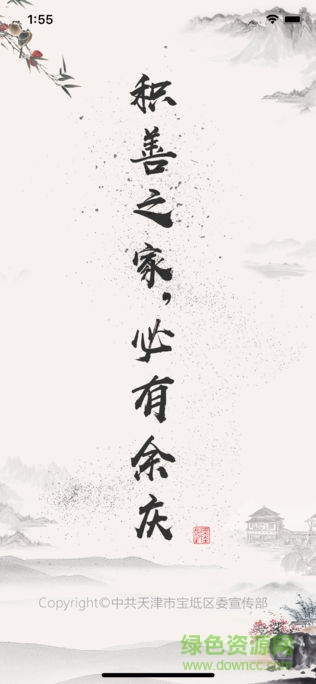 1:55
积善之家，必有余庆
Copyright©中共天津市宝坻区委宣传部
绿色资源网
www.downcc.com